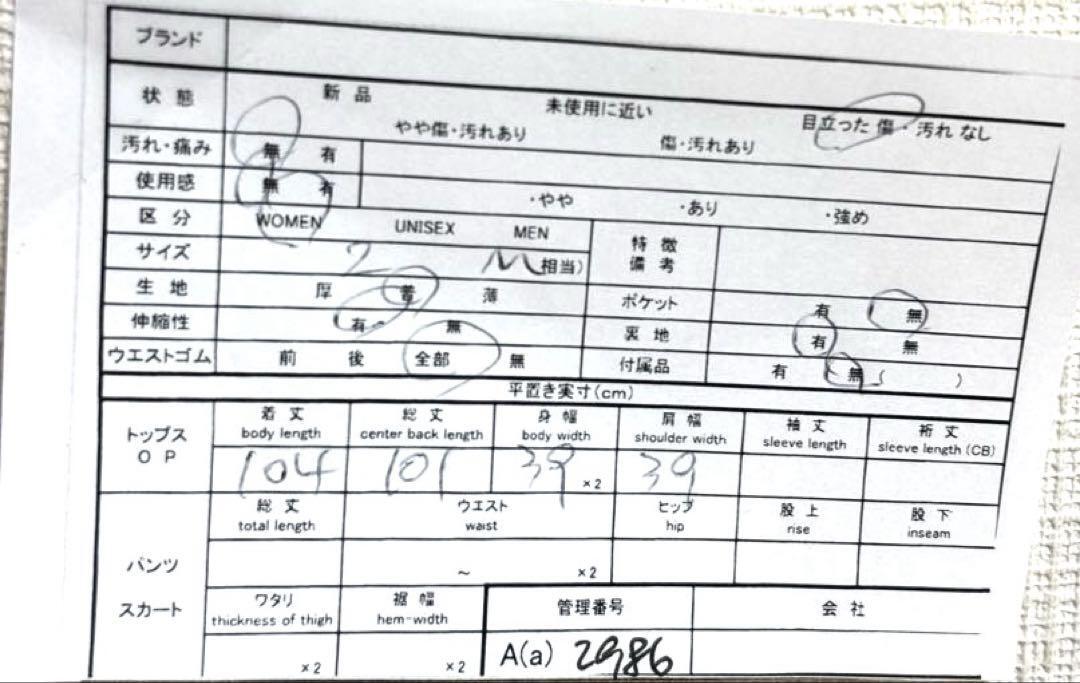 ブランド
状態 新品 未使用に近い 目立った傷・汚れなし
やや傷・汚れあり 傷・汚れあり
汚れ・痛み 無 有
使用感 無 有 ・やや ・あり ・強め
区分 WOMEN UNISEX MEN
特徴
備考
サイズ 2 M相当)
生地 厚 普 薄
ポケット 有 無
伸縮性 有 無
裏地 有 無
ウエストゴム 前 後 全部 無
付属品 有 無 ( )
平置き実寸(cm)
トップス
OP
着丈 総丈 身幅 肩幅 袖丈 裄丈
body length center back length body width shoulder width sleeve length sleeve length (CB)
104 101 39 ×2 39
パンツ
スカート
総丈 ウエスト ヒップ 股上 股下
total length waist hip rise inseam
~ ×2
ワタリ 裾幅 管理番号 会社
thickness of thigh hem-width
×2 ×2 A(a) 2986